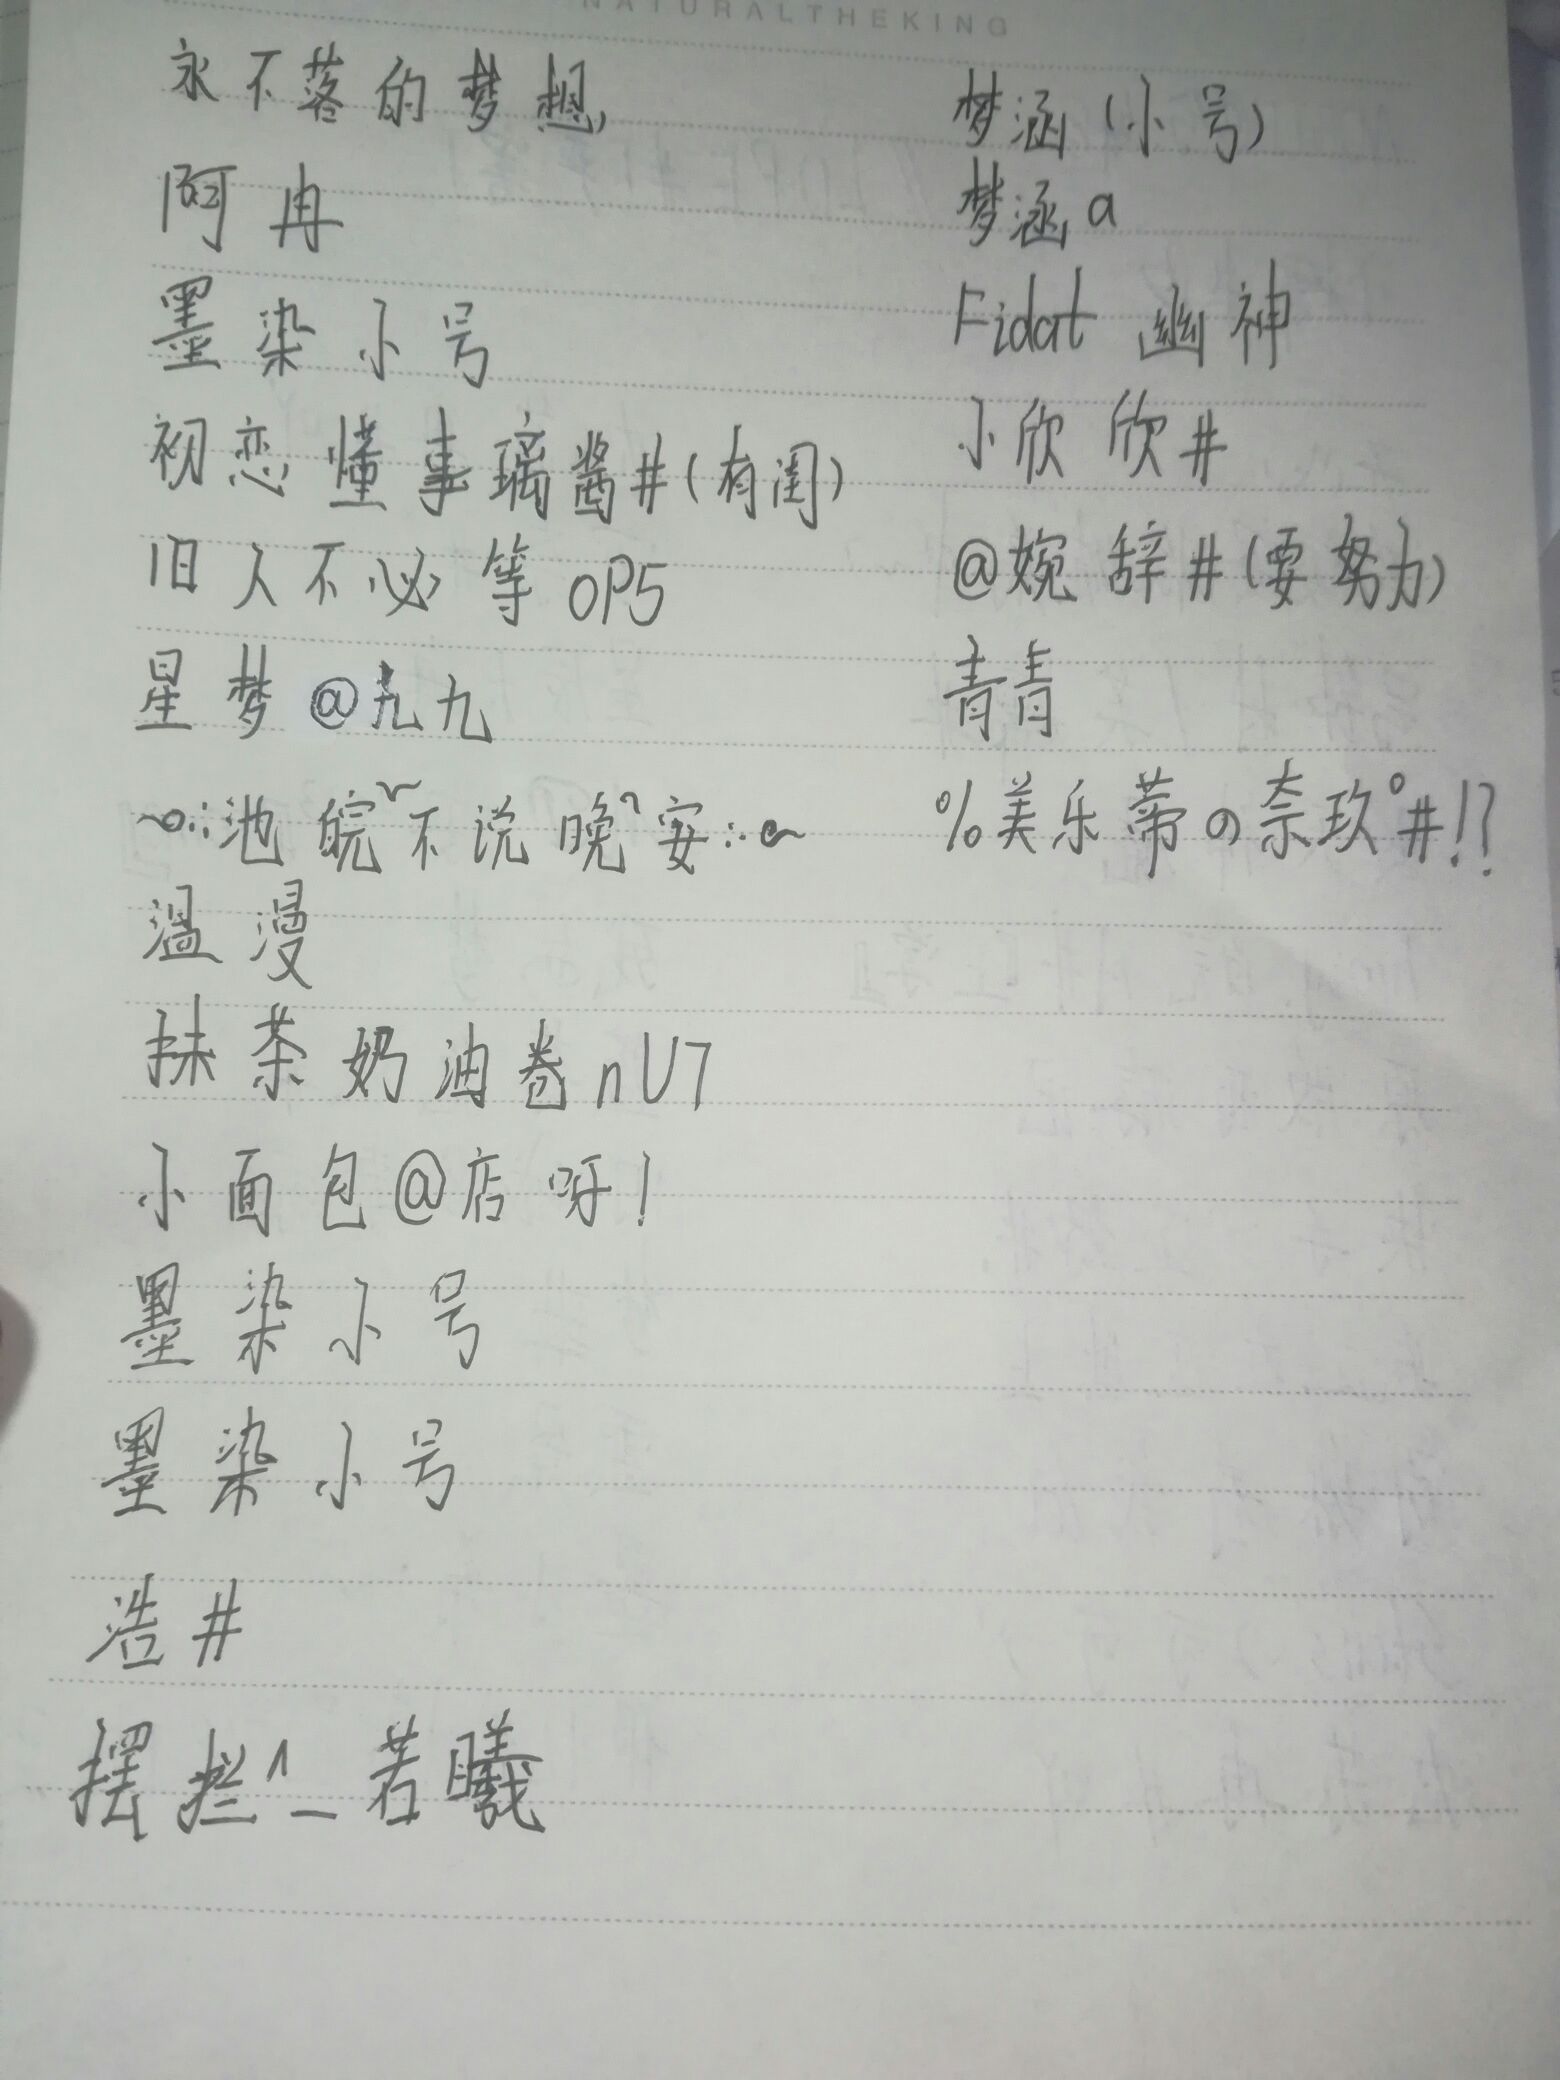 NATURALTHEKING
永不落的梦想
阿冉
墨染小号
初恋懂事璃酱#(有闺)
旧人不必等OP5
星梦@九九
~o∴池皖~不说晚~安∴o~
温漫
抹茶奶油卷nU7
小面包@店呀!
墨染小号
墨染小号
浩#
摆烂^_若曦
梦涵(小号)
梦涵a
Fidat 幽神
小欣欣#
@婉辞#(要努力)
青青
%美乐蒂の奈玖°#!?